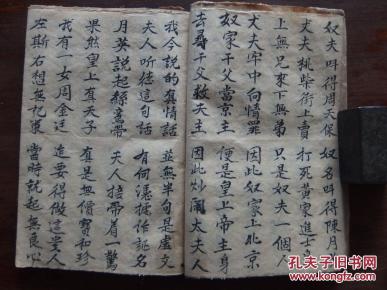 奴夫叫得周天保 奴名叫得陳月
丈夫挑柴街上賣 打死黃家進士
上無兄來下無弟 只是奴夫一個人
丈夫牢中问情罪 因此奴家上北京
奴家干父當京主 便是皇上帝主身
去尋干父救夫主 因此炒鬧太夫人
我今説的真情話 並無半句是虛文
夫人听徒這句話 有何憑據作証名
月英說起絲鸞帶 夫人捨帶肩一驚
果然皇上真天子 真是無價寳和珍
我有一女周金廷 得做這貴人
左斯右想無記策 當時就起無良心